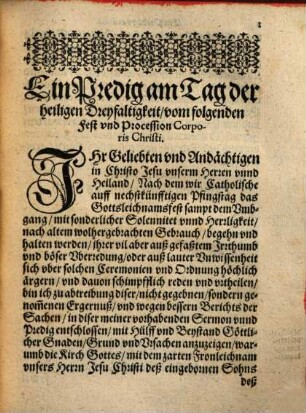 Ein Predig am Tag der
heiligen Dreyfaltigkeit/vom folgenden
Fest vnd Procession Corpo-
ris Christi.
IHr Geliebten vnd Andächtigen
in Christo Jesu vnserm Herren vnnd
Heiland/ Nach dem wir Catholische
auff nechstkünfftigen Pfingstag das
Gottsleichnamsfest sampt dem Vmb-
gang/ mit sonderlicher Solennitet vnnd Herrligkeit/
nach altem wolhergebrachten Gebrauch/ begehn vnd
halten werden/ ihrer vil aber auß gefaßtem Irrthumb
vnd böser Vberredung/ oder auß lauter Vnwissenheit
sich vber solchen Ceremonien vnd Ordnung höchlich
ärgern/ vnd dauon schimpfflich reden vnd vrtheilen/
bin ich zu abtreibung diser/ nicht gegebnen/ sondern ge-
nom̃enen Ergernuß/ vnd wegen bessern Berichts der
Sachen/ in diser meiner vorhabenden Sermon vnnd
Predig entschlossen/ mit Hülff vnd Beystand Göttli-
cher Gnaden/ Grund vnd Vrsachen anzuzeigen/ war-
umb die Kirch Gottes/ mit dem zarten Fronleichnam
vnsers Herrn Jesu Christi deß eingebornen Sohns
deß